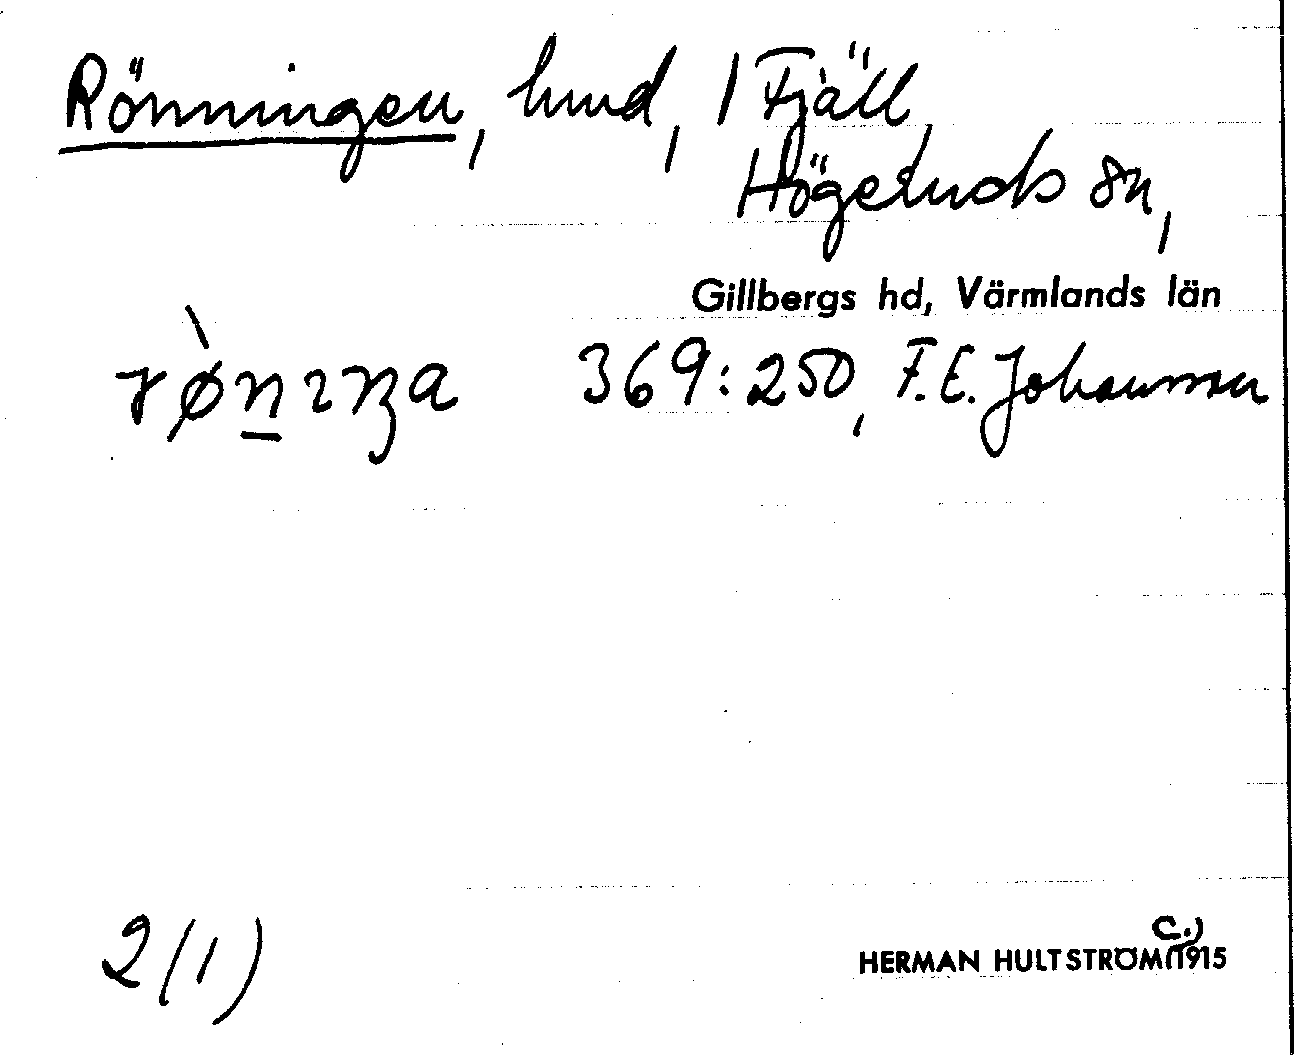 Rönningen, hmd, 1 Fjäll,
Högeruds sn,
Gillbergs hd, Värmlands län
369:250, F.E. Johansson
2(1)
HERMAN HULTSTRÖM (c.) 1915